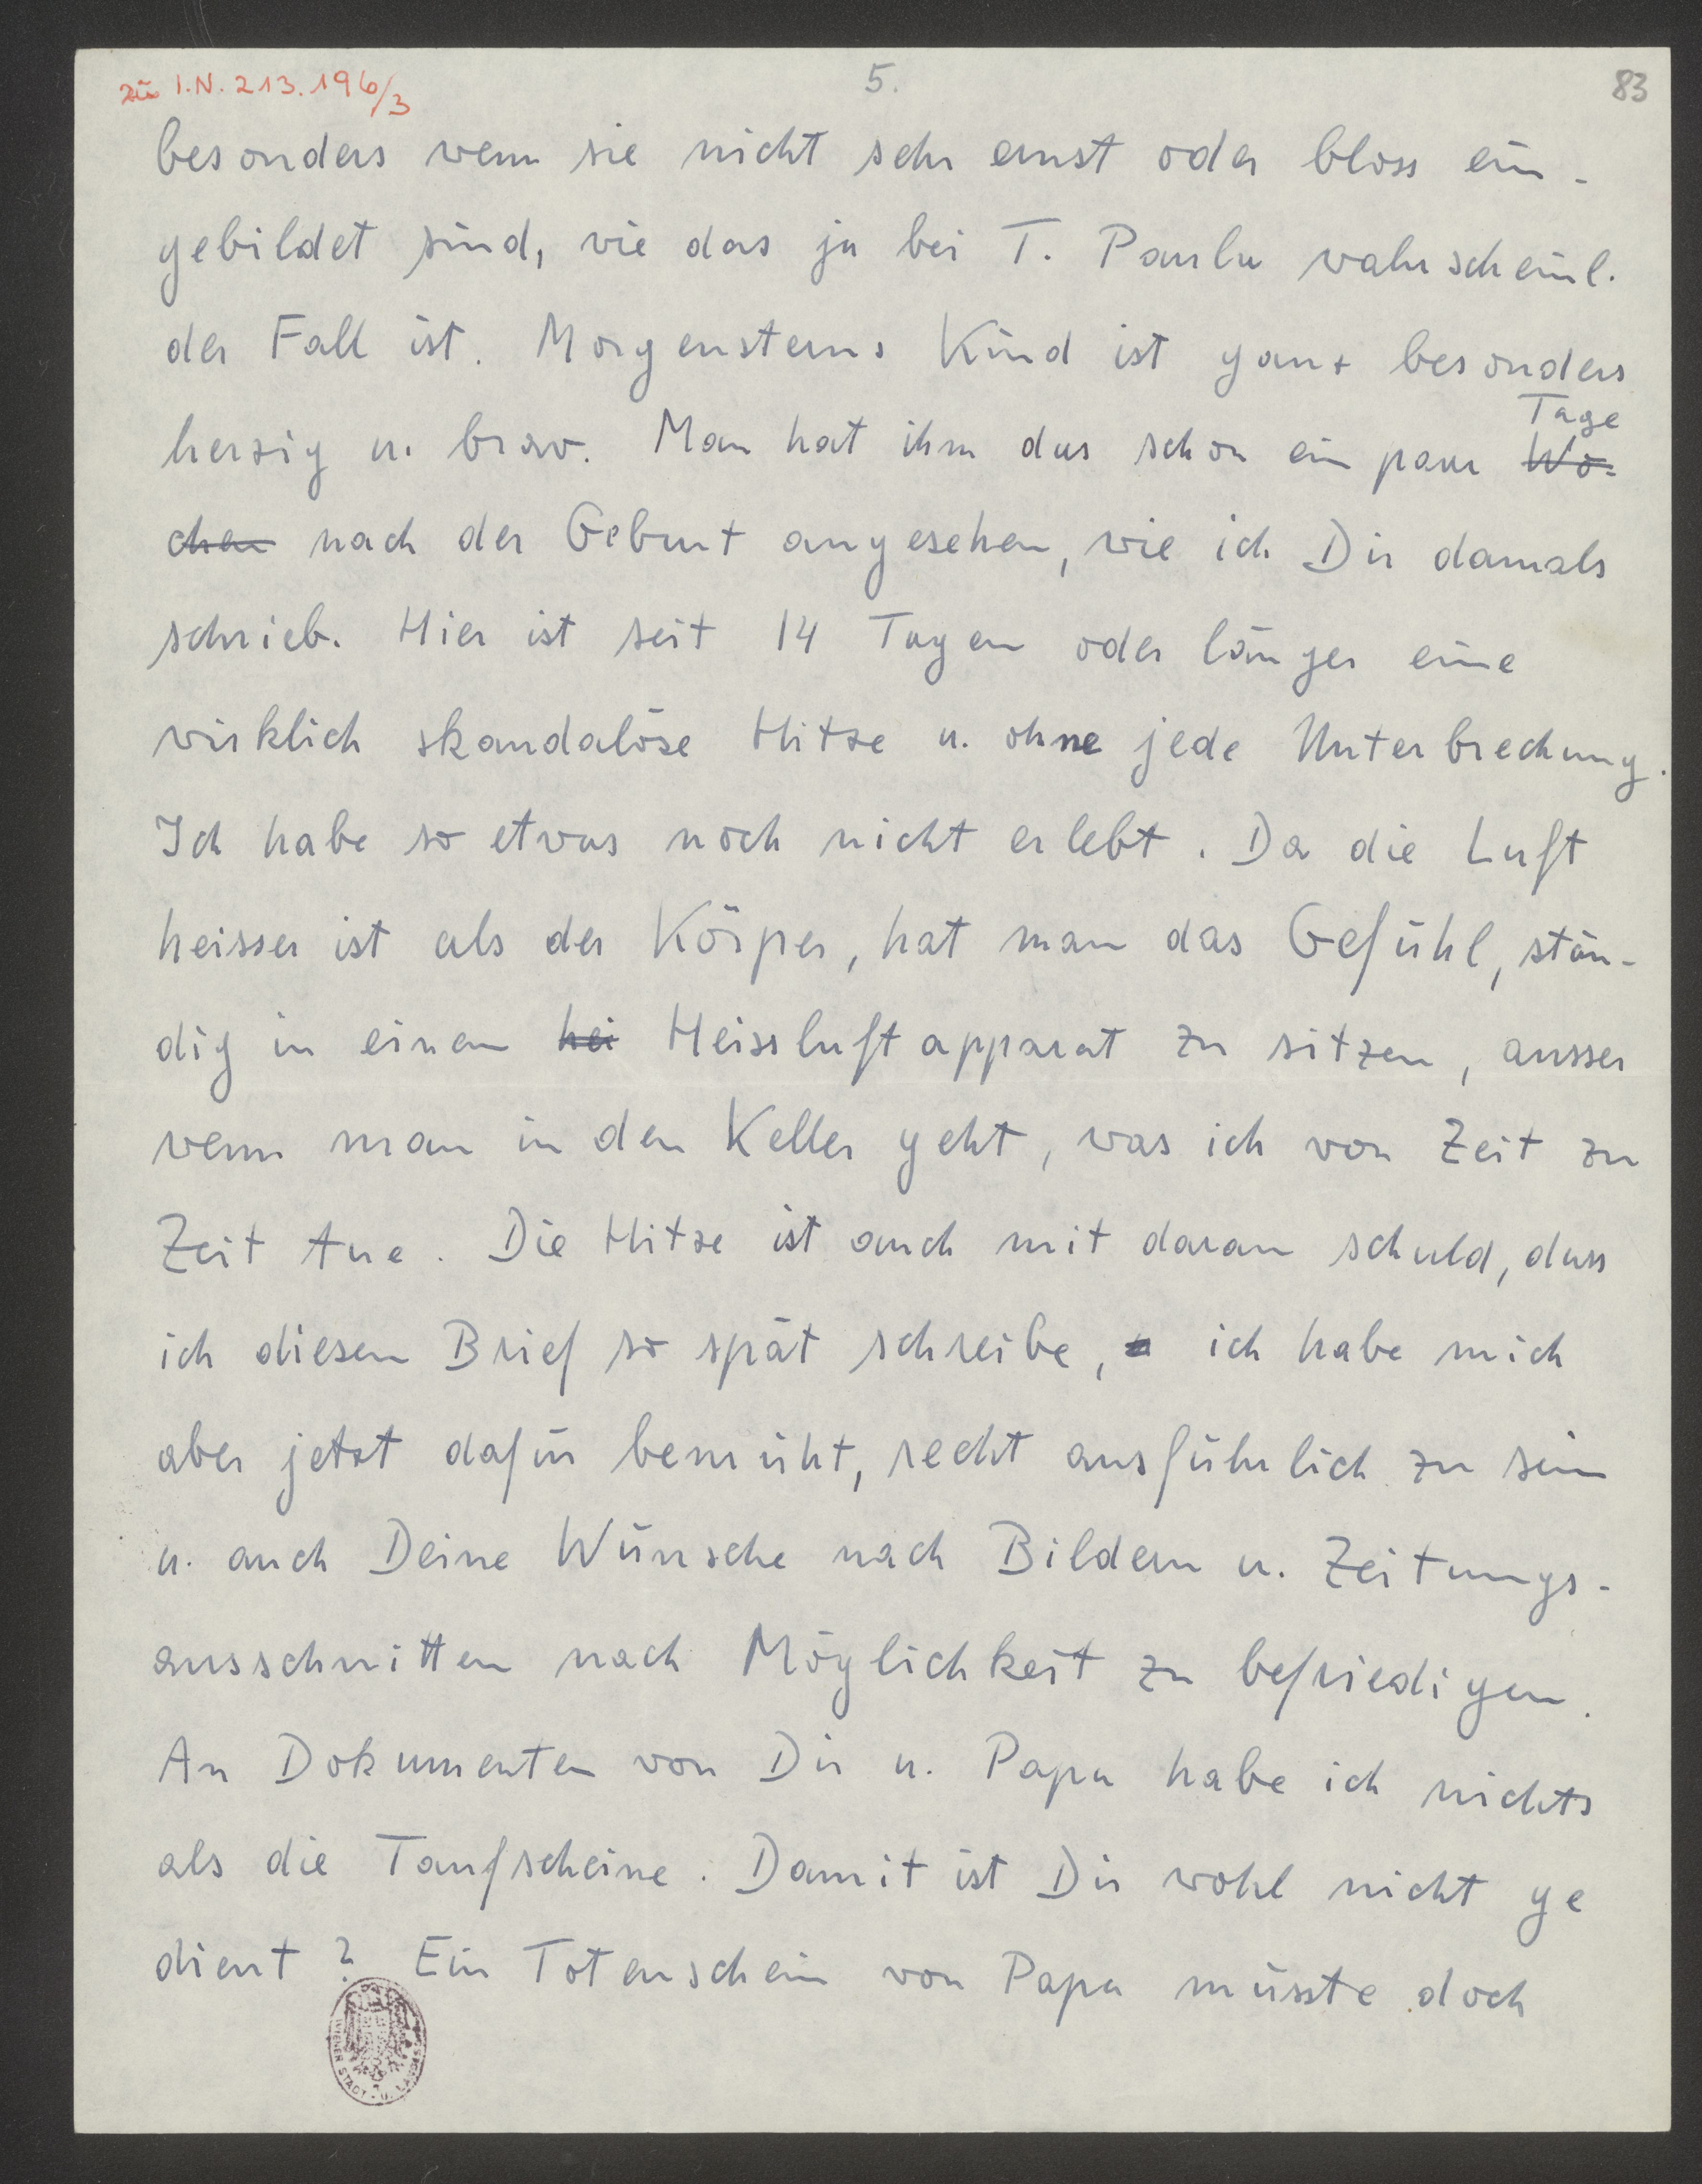 zu I.N. 213.196/3
5.
83
besonders wenn sie nicht sehr ernst oder bloss ein-
gebildet sind, wie das ja bei T. Paula wahrscheinl.
der Fall ist. Morgensterns Kind ist ganz besonders
herzig u. brav. Man hat ihm das schon ein paar Wo-
Tage
chen nach der Geburt angesehen, wie ich Dir damals
schrieb. Hier ist seit 14 Tagen oder länger eine
wirklich skandalöse Hitze u. ohne jede Unterbrechung.
Ich habe so etwas noch nicht erlebt. Da die Luft
heisser ist als der Körper, hat man das Gefühl, stän-
dig in einem hei Heissluftapparat zu sitzen, ausser
wenn man in den Keller geht, was ich von Zeit zu
Zeit tue. Die Hitze ist auch mit daran schuld, dass
ich diesen Brief so spät schreibe, ich habe mich
aber jetzt dafür bemüht, recht ausführlich zu sein
u. auch Deine Wünsche nach Bildern u. Zeitungs-
ausschnitten nach Möglichkeit zu befriedigen.
An Dokumenten von Dir u. Papa habe ich nichts
als die Taufscheine. Damit ist Dir wohl nicht ge
dient? Ein Totenschein von Papa müsste doch